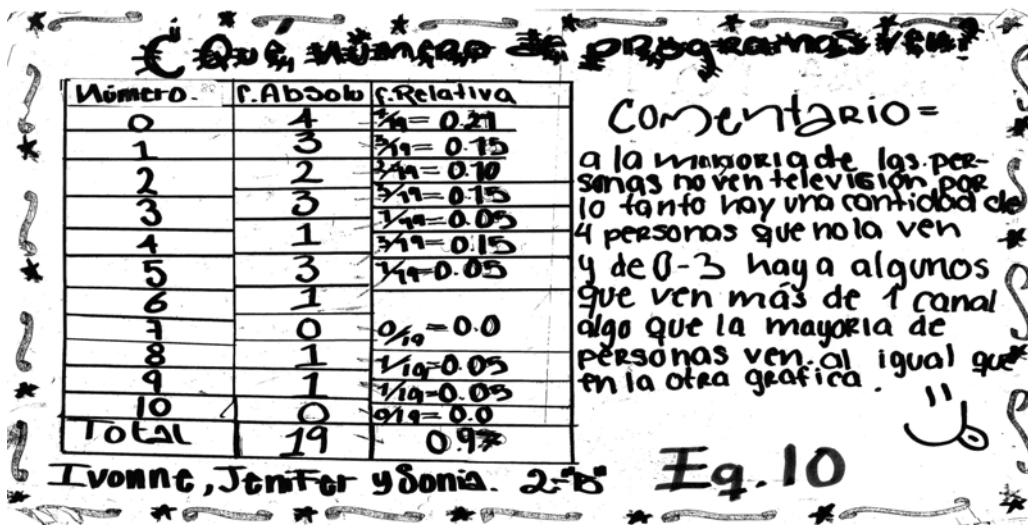 ¿Qué número de programas ven?
Número. f.Absolu f.Relativa
0 4 4/19= 0.21
1 3 3/19= 0.15
2 2 2/19= 0.10
3 3 3/19= 0.15
4 1 1/19=0.05
5 3 3/19= 0.15
6 1 1/19=0.05
7 0 0/19=0.0
8 1 1/19=0.05
9 1 1/19=0.05
10 0 0/19=0.0
Total 19 0.97
Comentario=
a la mayoria de las per-
sonas no ven televisión por
lo tanto hay una cantidad de
4 personas que no la ven
y de 0-3 hay a algunos
que ven más de 1 canal
algo que la mayoria de
personas ven. al igual que
en la otra grafica.
Ivonne, Jenifer y Sonia. 2-"B"
Eq. 10